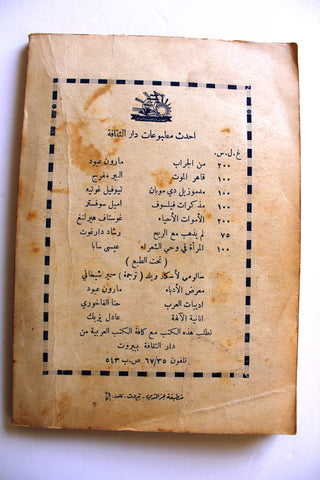 احدث مطبوعات دار الثقافة
غ.ل.س.
من الجراب مارون عبود ٢٠٠
قاهر الموت البير مفرج ١٠٠
مدموزيل دي موبان تيوفيل غوتيه ١٠٠
مذكرات فيلسوف اميل سوفستر ١٠٠
الأموات الأحياء غوستاف هيرلنغ ٢٠٠
لم يذهب مع الريح رشاد دارغوث ٧٥
المرأة في وحي الشعراء عيسى سابا ١٠٠
( تحت الطبع )
سالومي لأسكار ويلد ( ترجمة ) سمير شيخاني
معرض الأدباء مارون عبود
ادبيات العرب حنا الفاخوري
انانية الآلهة عادل يزبك
تطلب هذه الكتب مع كافة الكتب العربية من
دار الثقافة ببيروت
تلفون ٦٧/٣٥ ص.ب ٥٤٣